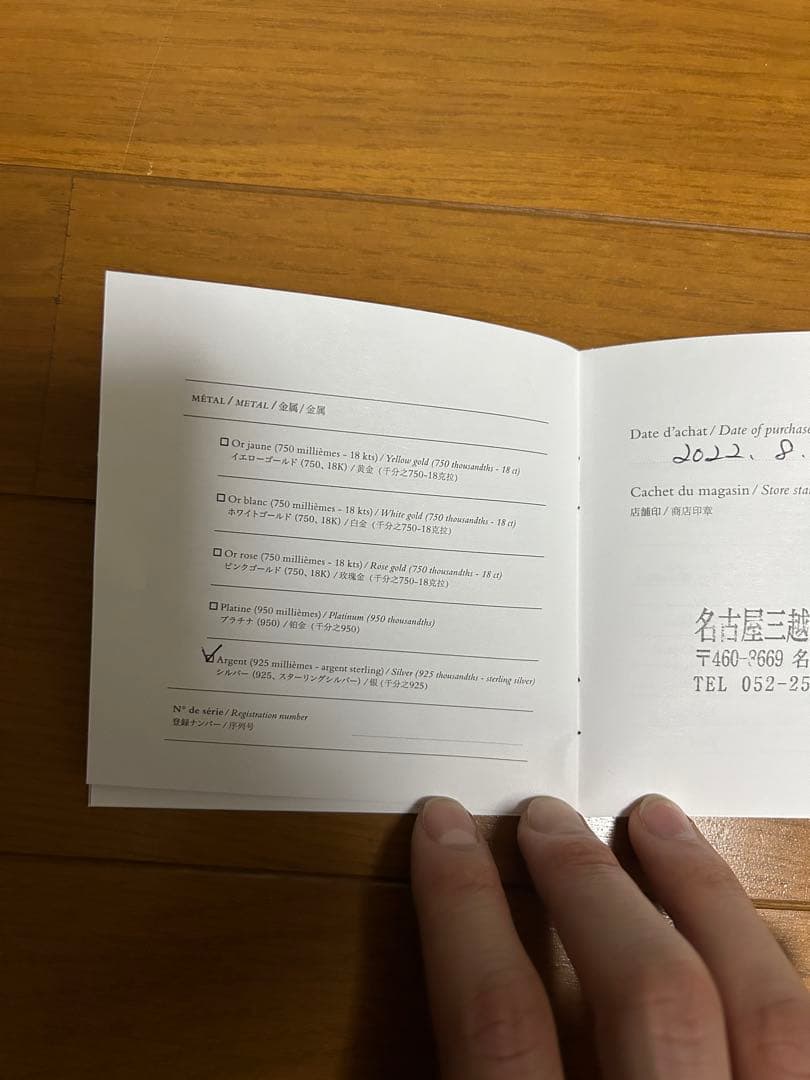 MÉTAL / METAL / 金属 / 金属
Or jaune (750 millièmes - 18 kts) / Yellow gold (750 thousandths - 18 ct)
イエローゴールド (750、18K) / 黄金 (千分之750-18克拉)
Or blanc (750 millièmes - 18 kts) / White gold (750 thousandths - 18 ct)
ホワイトゴールド (750、18K) / 白金 (千分之750-18克拉)
Or rose (750 millièmes - 18 kts) / Rose gold (750 thousandths - 18 ct)
ピンクゴールド (750、18K) / 玫瑰金 (千分之750-18克拉)
Platine (950 millièmes) / Platinum (950 thousandths)
プラチナ (950) / 铂金 (千分之950)
Argent (925 millièmes - argent sterling) / Silver (925 thousandths - sterling silver)
シルバー (925、スターリングシルバー) / 银 (千分之925)
N° de série / Registration number
登録ナンバー / 序列号
Date d'achat / Date of purchase
2022. 8.
Cachet du magasin / Store
店舗印 / 商店印章
名古屋三越
〒460-8669 名
TEL 052-25